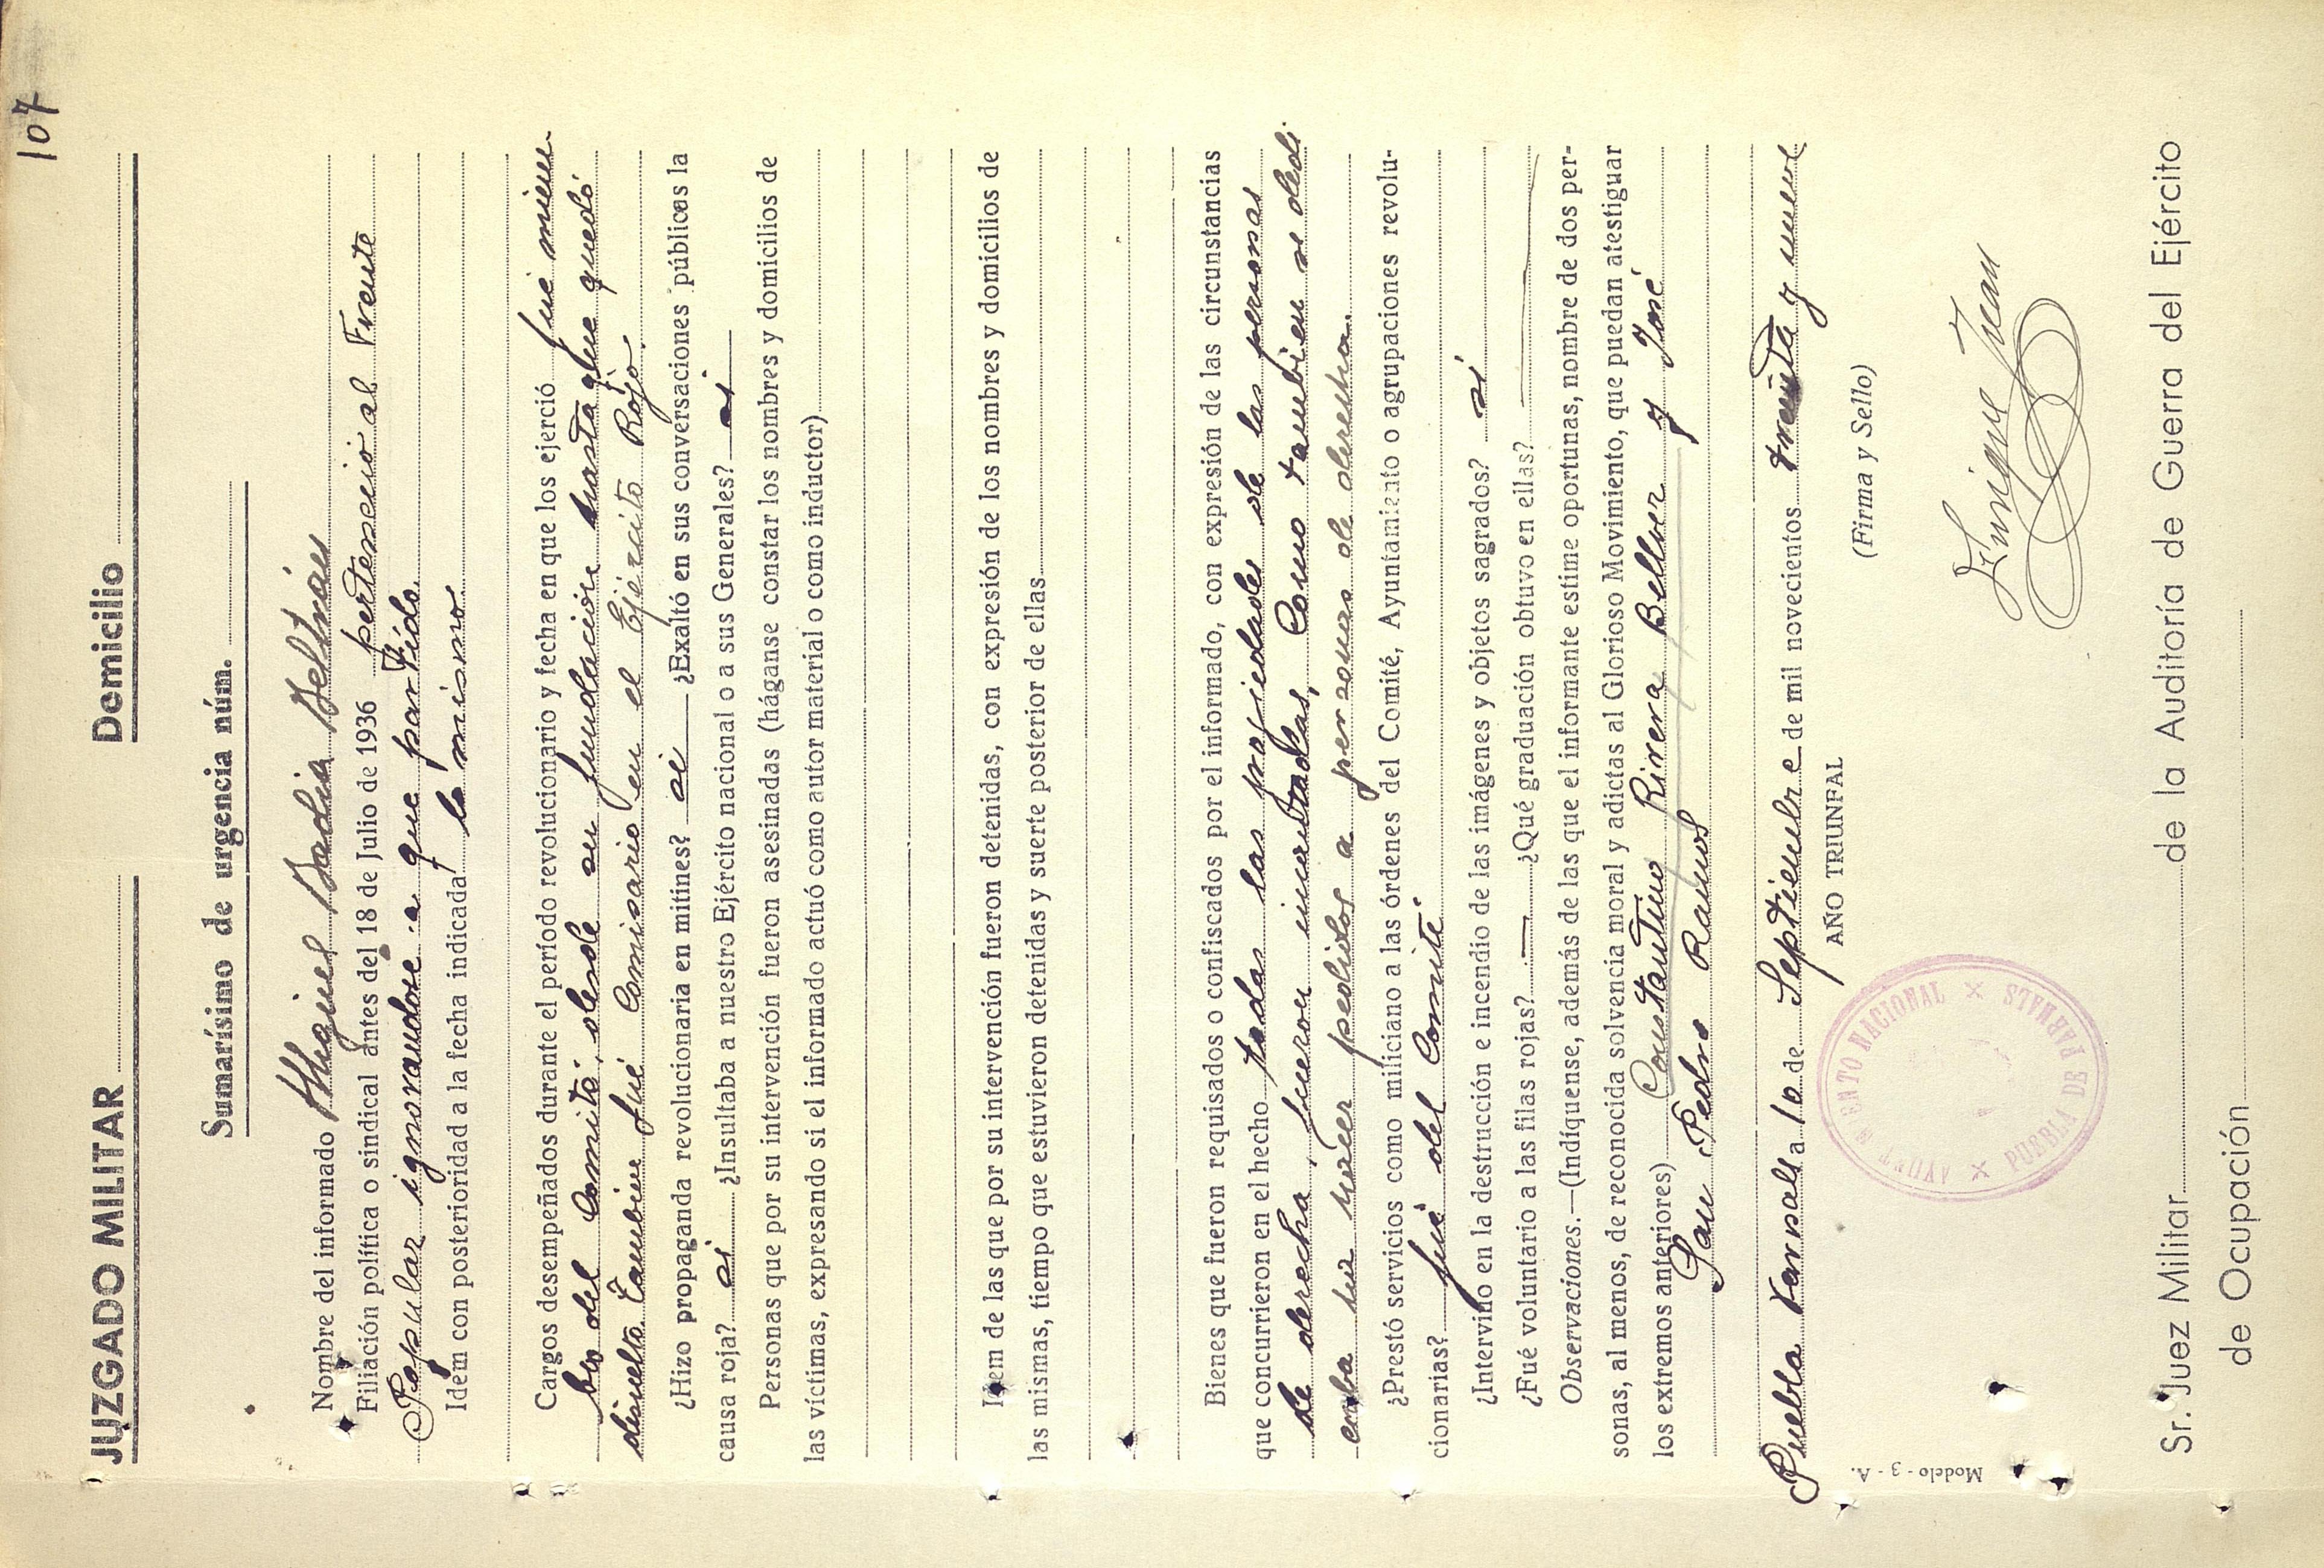 107
JUZGADO MILITAR Domicilio
Sumarísimo de urgencia núm.
Nombre del informado Miguel Badia Beltrán
Filiación política o sindical antes del 18 de Julio de 1936 pertenecio al Frente
Popular ignorandose a que partido.
Idem con posterioridad a la fecha indicada lo mismo
Cargos desempeñados durante el período revolucionario y fecha en que los ejerció fué miem
bro del Comité, desde su fundacion hasta que quedó
disuelto. Tambien fué Comisario en el Ejército Rojo.
¿Hizo propaganda revolucionaria en mitines? si ¿Exaltó en sus conversaciones públicas la
causa roja? si ¿Insultaba a nuestro Ejército nacional o a sus Generales? si
Personas que por su intervención fueron asesinadas (háganse constar los nombres y domicilios de
las víctimas, expresando si el informado actuó como autor material o como inductor)
Idem de las que por su intervención fueron detenidas, con expresión de los nombres y domicilios de
las mismas, tiempo que estuvieron detenidas y suerte posterior de ellas
Bienes que fueron requisados o confiscados por el informado, con expresión de las circunstancias
que concurrieron en el hecho todas las propiedades de las personas
de derecha, fueron incautadas, Como tambien se dedi
caba ha hacer pedidos a personas de derecha.
¿Prestó servicios como miliciano a las órdenes del Comité, Ayuntamiento o agrupaciones revolu-
cionarias? fué del Comité
¿Intervino en la destrucción e incendio de las imágenes y objetos sagrados? si
¿Fué voluntario a las filas rojas? — ¿Qué graduación obtuvo en ellas?
Observaciones.—(Indíquense, además de las que el informante estime oportunas, nombre de dos per-
sonas, al menos, de reconocida solvencia moral y adictas al Glorioso Movimiento, que puedan atestiguar
los extremos anteriores) Constantino Rivera Bellver y José
San Pedro Ramos
Puebla Farnals a 10 de Septiembre de mil novecientos treinta y nueve
AÑO TRIUNFAL
(Firma y Sello)
AYUNTAMIENTO NACIONAL
PUEBLA DE FARNALS
Enrique Juan
Modelo - 3 - A.
Sr. Juez Militar de la Auditoría de Guerra del Ejército
de Ocupación